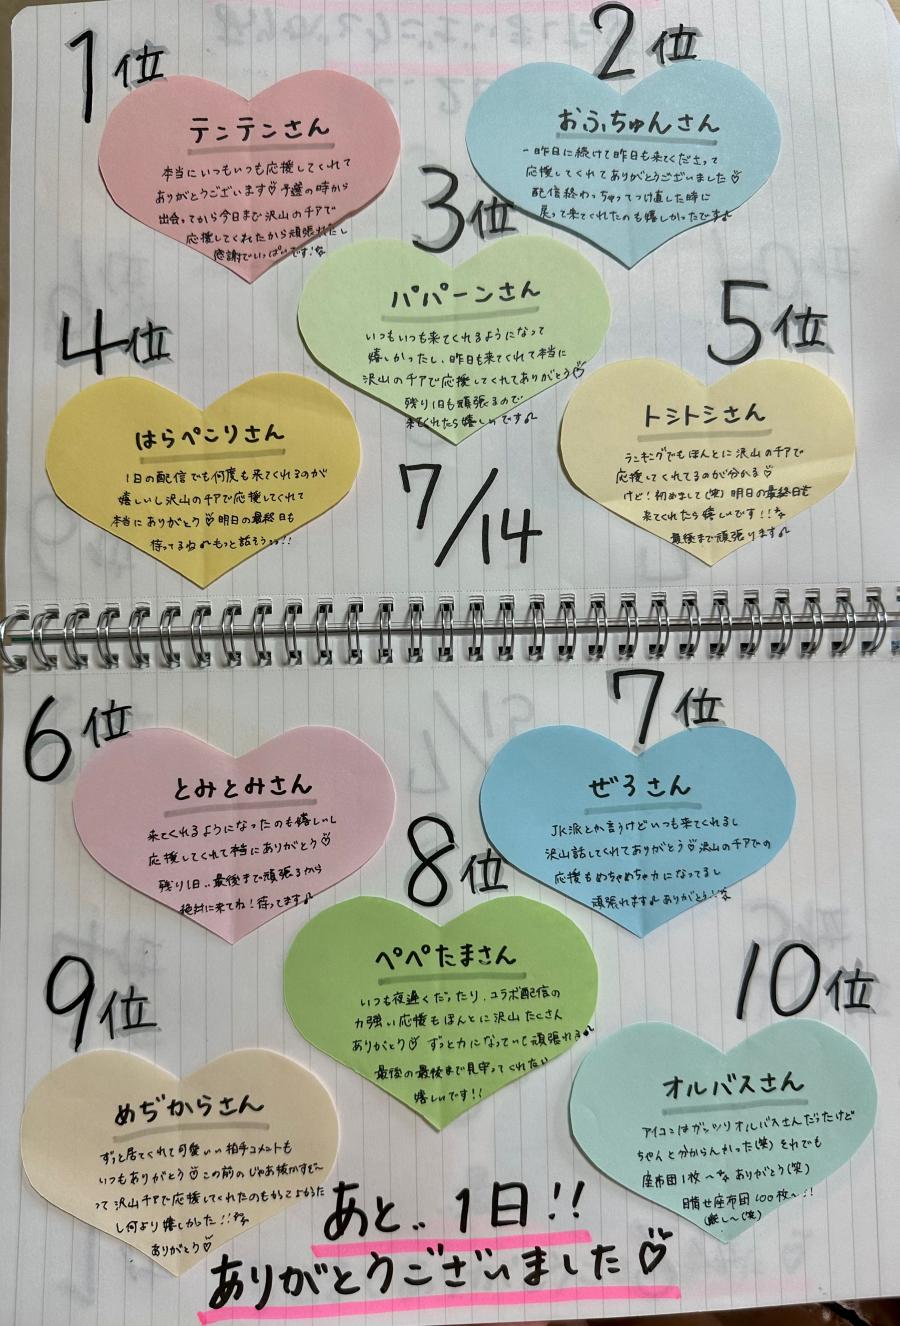 1位
テンテンさん
本当にいつもいつも応援してくれて
ありがとうございます♡予選の時から
出会ってから今日まで沢山のチアで
応援してくれたから頑張れたし
感謝でいっぱいです!
2位
おふちゅんさん
一昨日に続けて昨日も来てくださって
応援してくれてありがとうございました♡
配信終わっちゃってつけ直した時に
戻って来てくれたのも嬉しかったです♪
3位
パパーンさん
いつもいつも来てくれるようになって
嬉しかったし、昨日も来てくれて本当に
沢山のチアで応援してくれてありがとう♡
残り1日も頑張るので
来てくれたら嬉しいです♪
4位
はらぺこりさん
1日の配信でも何度も来てくれるのが
嬉しいし沢山のチアで応援してくれて
本当にありがとう♡明日の最終日も
待ってるね♪もっと話そう!!
5位
トシトシさん
ランキングでもほんとに沢山のチアで
応援してくれてるのが分かる♡
けど!初めまして(笑)明日の最終日も
来てくれたら嬉しいです!!
最後まで頑張ります♪
7/14
6位
とみとみさん
来てくれるようになったのも嬉しいし
応援してくれて本当にありがとう♡
残り1日..最後まで頑張るから
絶対に来てね!待ってます♪
7位
ぜろさん
JK派とか言うけどいつも来てくれるし
沢山話してくれてありがとう♡沢山のチアでの
応援もめちゃめちゃ力になってるし
頑張れます♪ありがとう!
8位
ペペたまさん
いつも夜遅くだったり、コラボ配信の
力強い応援もほんとに沢山たくさん
ありがとう♡ずっと力になっていて頑張れる♪
最後の最後まで見守ってくれたら
嬉しいです!!
9位
めぢからさん
ずっと居てくれて可愛いい拍手コメントも
いつもありがとう♡この前のじゃあ抜かすぜ〜
って沢山チアで応援してくれたのも
し何より嬉しかった!!
ありがとう♡
10位
オルバスさん
アイコンはガッツリオルバスさんだったけど
ちゃんと分からんかった(笑)それでも
座布団1枚〜ありがとう(笑)
目指せ座布団100枚〜!!
(厳し〜(笑)
あと..1日!!
ありがとうございました♡